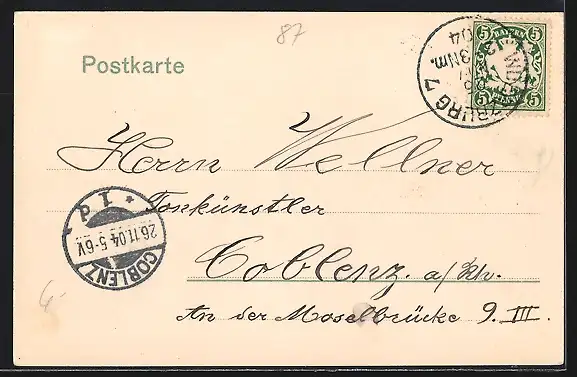 87
Postkarte
5 BAYERN 5
5 PFENNIG 5
BURG 7
3 Nm.
04
Herrn Wellner
Tonkünstler
Coblenz. a/Rh.
An der Moselbrücke 9. III.
* 1 d
26.11.04.5-6V
COBLENZ